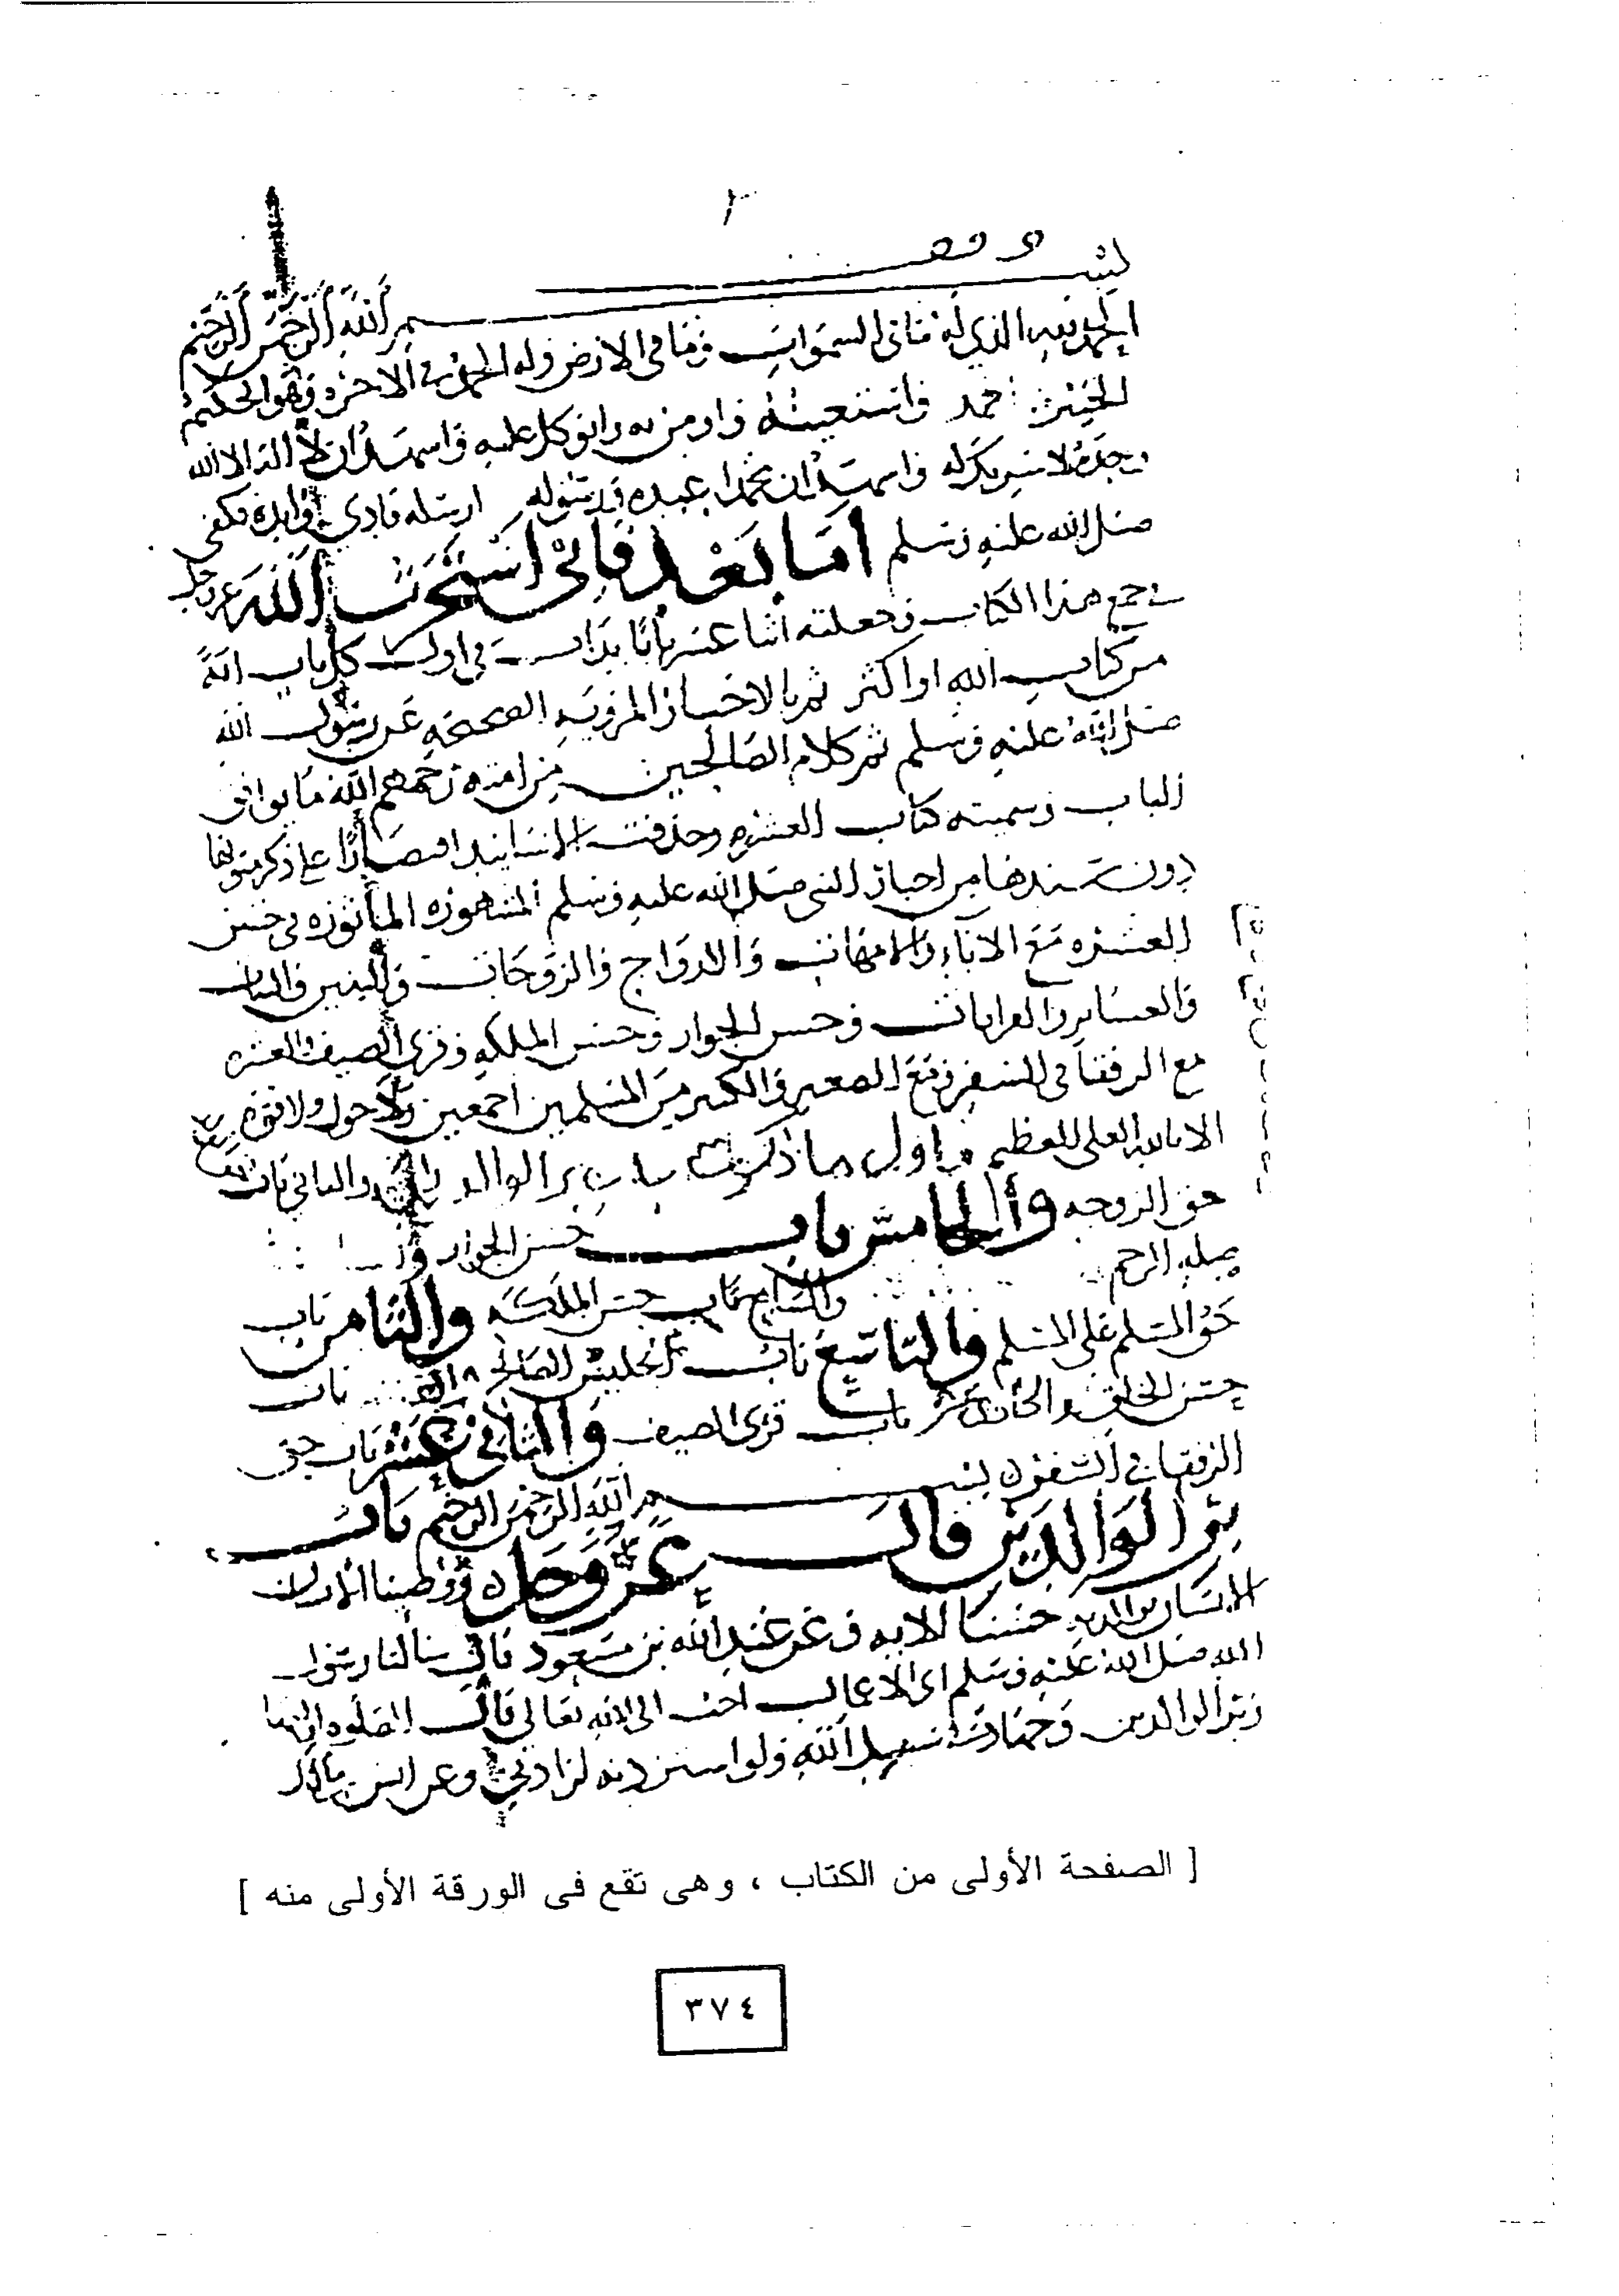 ٢
بسم الله الرحمن الرحيم
الحمد لله الذي له ما في السموات وما في الارض وله الحمد في الاخره وهو الحكيم
الخبير واستعينه واومن به واتوكل عليه واشهد ان لا اله الا الله
وحده لا شريك له واشهد ان محمدا عبده ورسوله ارسله
صلى الله عليه وسلم اما بعد فاني استخرت الله عز وجل
في جمع هذا الكتاب وجعلته اثنا عشر بابا بدات في اول كل باب ايه
من كتاب الله او اكثر ثم بالاخبار المرويه الصحيحه عن رسول الله
صلى الله عليه وسلم ثم كلام الصالحين من امته رحمهم الله ما يوافق
الباب وسميته كتاب العشره وحذفت الاسانيد اقتصارا على ذكر متونها
دون سندها من اخبار النبي صلى الله عليه وسلم المشهوره الماثوره في حسن
العشره مع الاباء والامهات والازواج والزوجات والبنين والبنات
والعشاير والقرابات وحسن الجوار وحسن الملكه وقرى الضيف والعشره
مع الرفقا في السفر ومع الصغير والكبير من المسلمين اجمعين ولا حول ولا قوه
الا بالله العلي العظيم فاول ما ذكرت باب بر الوالدين والثاني باب
حق الزوجه والخامس باب حسن الجوار
صله الرحم والسابع باب حسن الملكه والثامن باب
حق المسلم على المسلم والتاسع باب الجليس الصالح باب
حسن الخلق والحادي عشر باب قرى الضيف والثاني عشر باب حق
الرفقا في السفر بسم الله الرحمن الرحيم باب
بر الوالدين قال عز وجل ووصينا
الانسان بوالديه حسنا الايه وعن عبد الله بن مسعود قال سالنا رسول
الله صلى الله عليه وسلم اي الاعمال احب الى الله تعالى قال الصلوه
وبر الوالدين وجهاد في سبيل الله ولو استزدته لزادني وعن انس بن مالك
[ الصفحة الأولى من الكتاب ، وهى تقع فى الورقة الأولى منه ]
٣٧٤